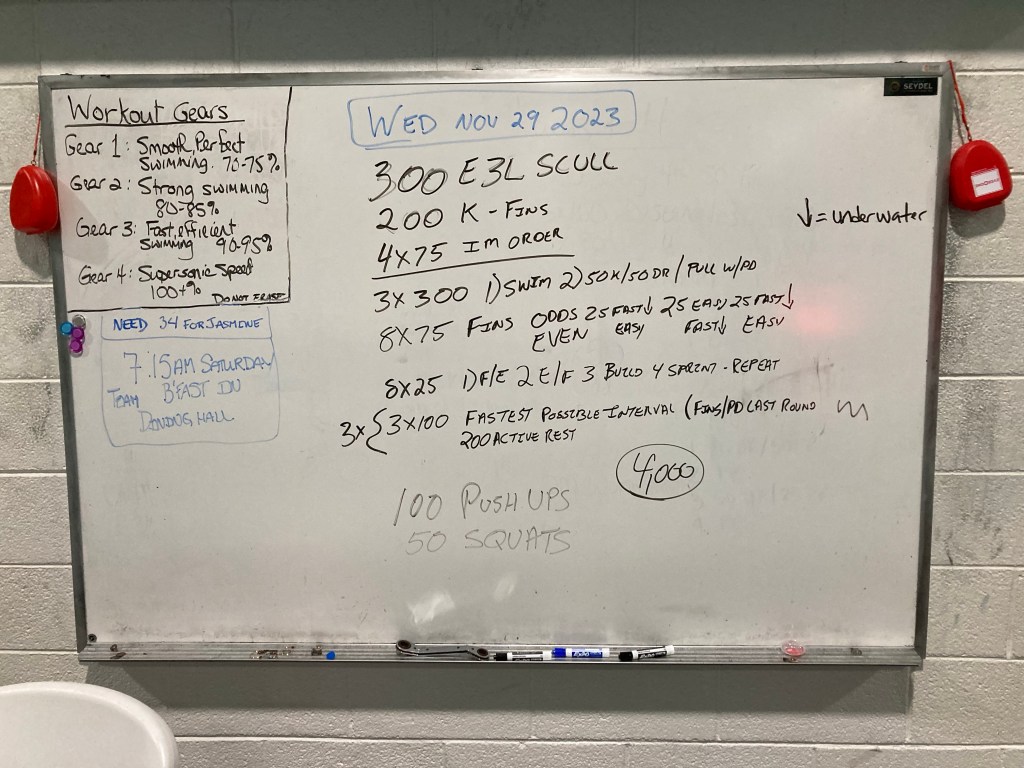 Workout Gears
Gear 1: Smooth, Perfect
Swimming. 70-75%
Gear 2: Strong swimming
80-85%
Gear 3: Fast, efficient
swimming 90-95%
Gear 4: Supersonic Speed
100+%
DO NOT ERASE
NEED 34 FOR JASMINE
7:15AM SATURDAY
TEAM B'FAST IN
HALL
SEYDEL
WED NOV 29 2023
300 E3L SCULL
200 K - FINS
4x75 IM ORDER
↓ = underwater
3 x 300 1) SWIM 2) 50K/50DR / PULL W/PD
8x75 FINS ODDS 25 FAST↓ 25 EASY 25 FAST↓
EVEN EASY FAST↓ EASY
8x25 1) F/E 2 E/F 3 BUILD 4 SPRINT - REPEAT
3x { 3x100 FASTEST POSSIBLE INTERVAL (FINS/PD LAST ROUND
200 ACTIVE REST
4,000
100 PUSH UPS
50 SQUATS